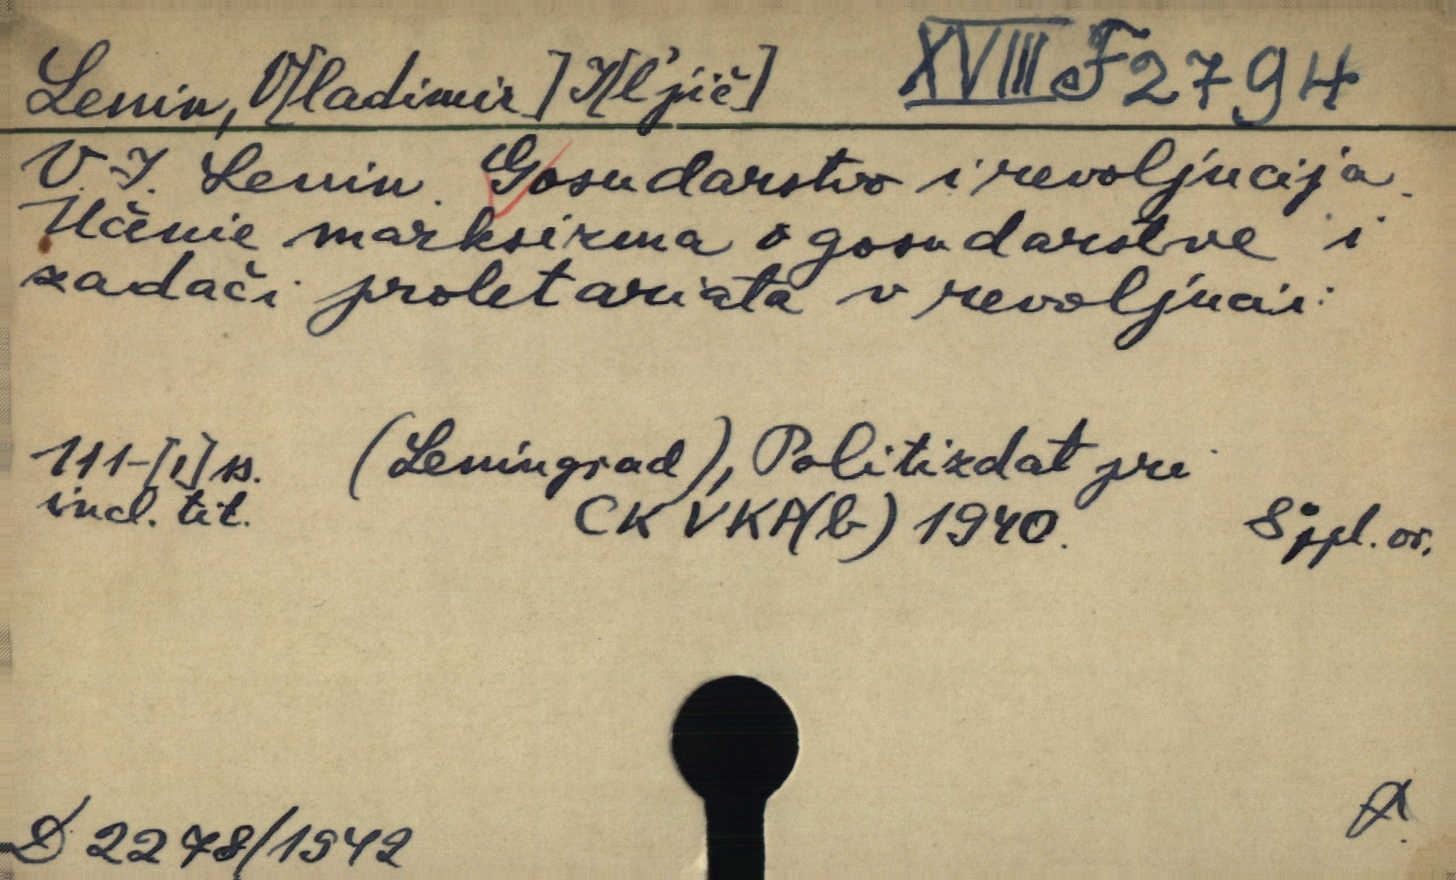 Lenin, V[ladimir] I[l'jič] XVIII F 2794
V. I. Lenin. Gosudarstvo i revoljucija.
Učenie marksizma o gosudarstve i
zadači proletariata v revoljucii.
111-[1] s. (Leningrad), Politizdat pri
incl. tit. CK VKP(b) 1940. 8° ppl. or.
D 2278/1942